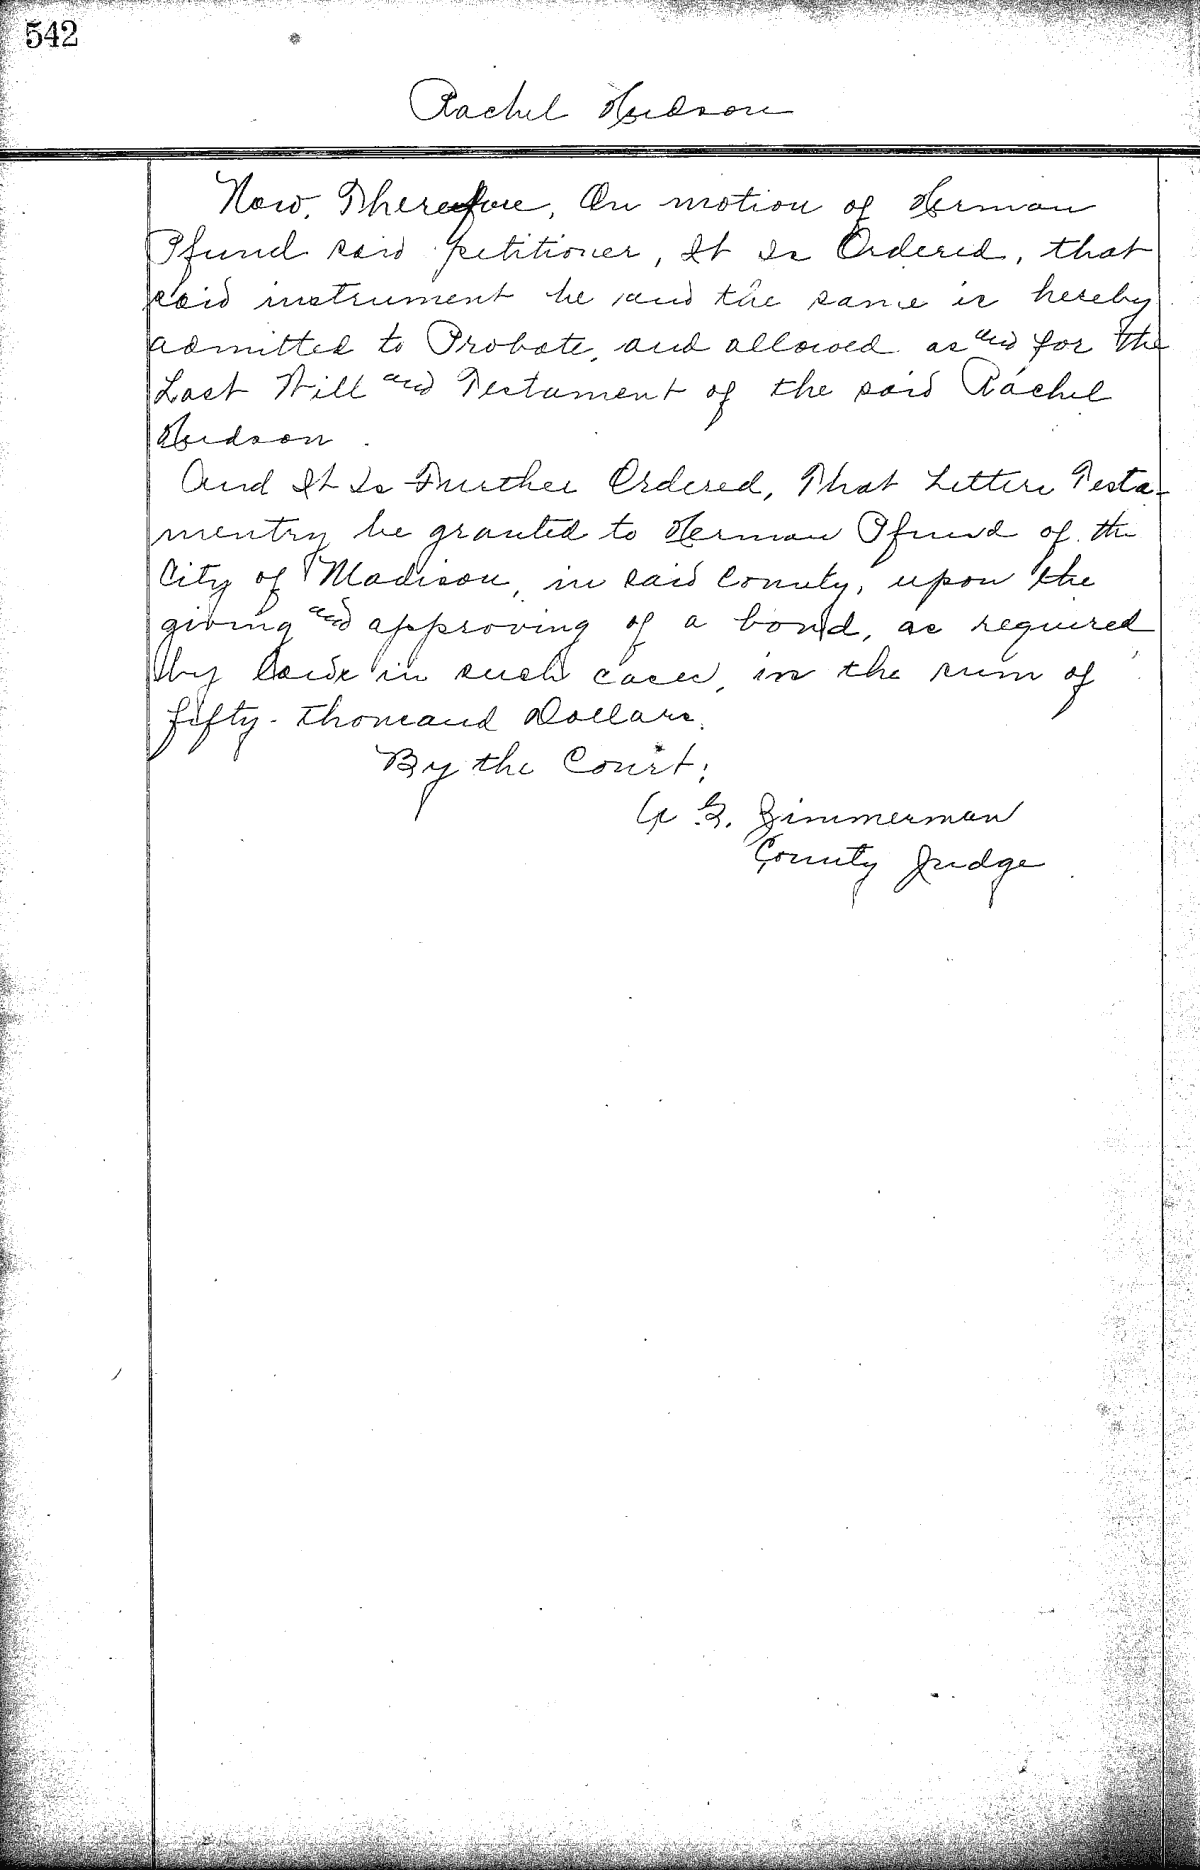 542
Rachel Hudson
Now, Therefore, On motion of Herman
Pfund said petitioner, It Is Ordered, that
said instrument be and the same is hereby
admitted to Probate, and allowed as and for the
Last Will and Testament of the said Rachel
Hudson.
And It Is Further Ordered, That Letters Testa-
mentry be granted to Herman Pfund of the
City of Madison, in said County, upon the
giving and approving of a bond, as required
by law in such cases, in the sum of
fifty-thousand Dollars.
By the Court;
A. G. Zimmerman
County Judge